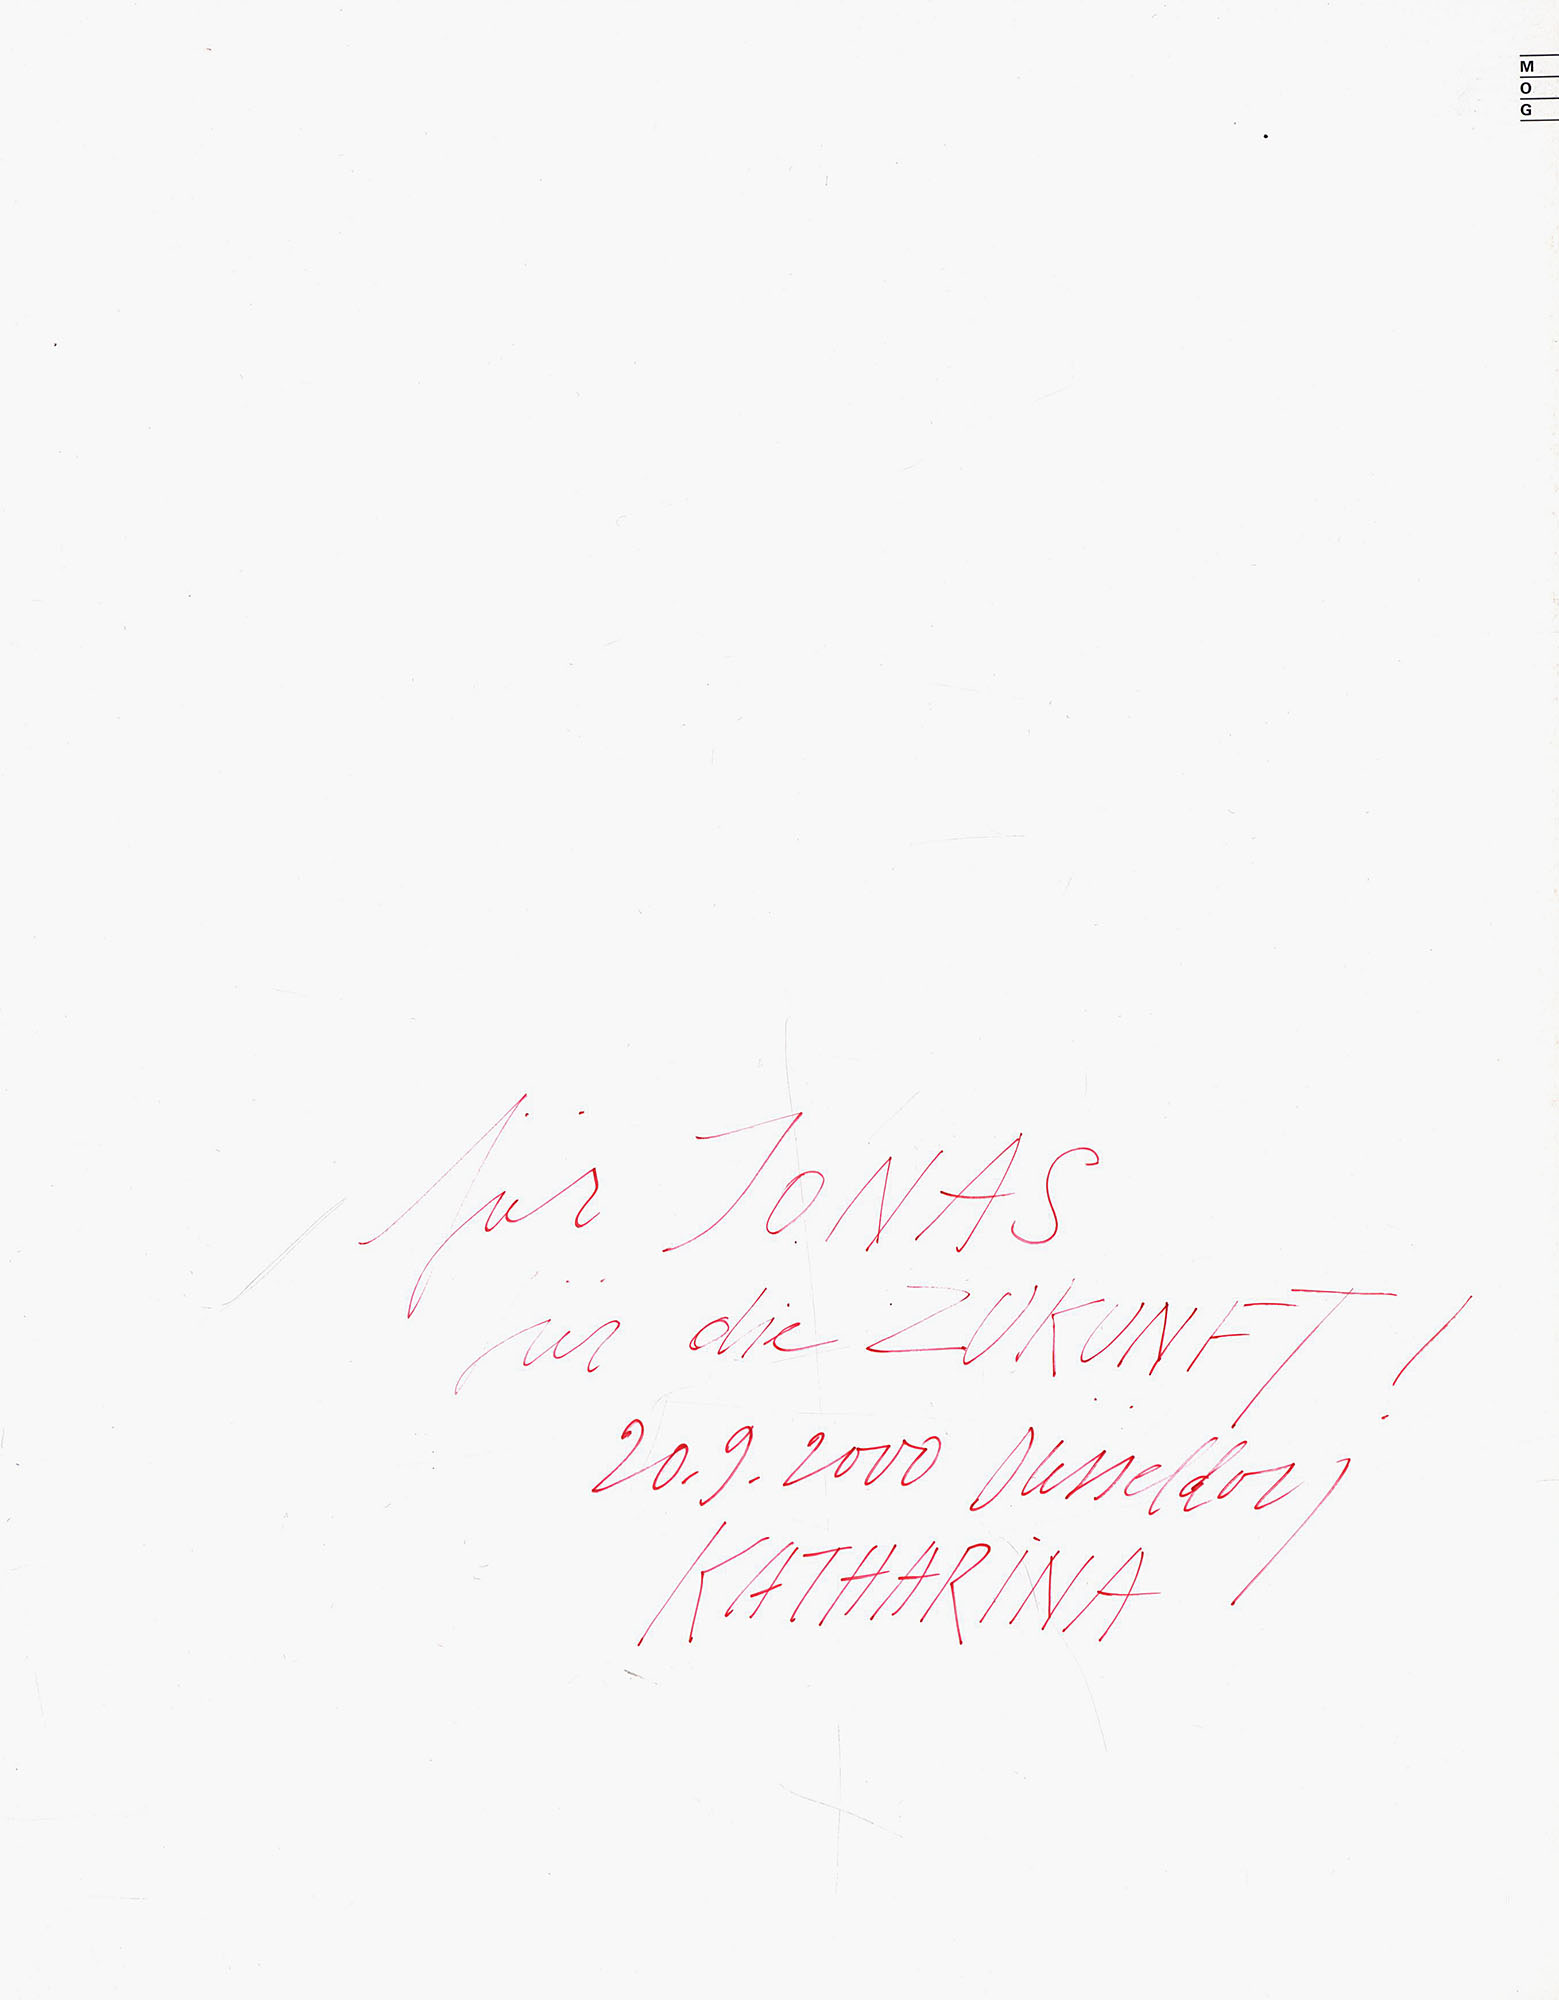 M
O
G
für JONAS
für die ZUKUNFT!
20.9.2000 Düsseldorf
KATHARINA